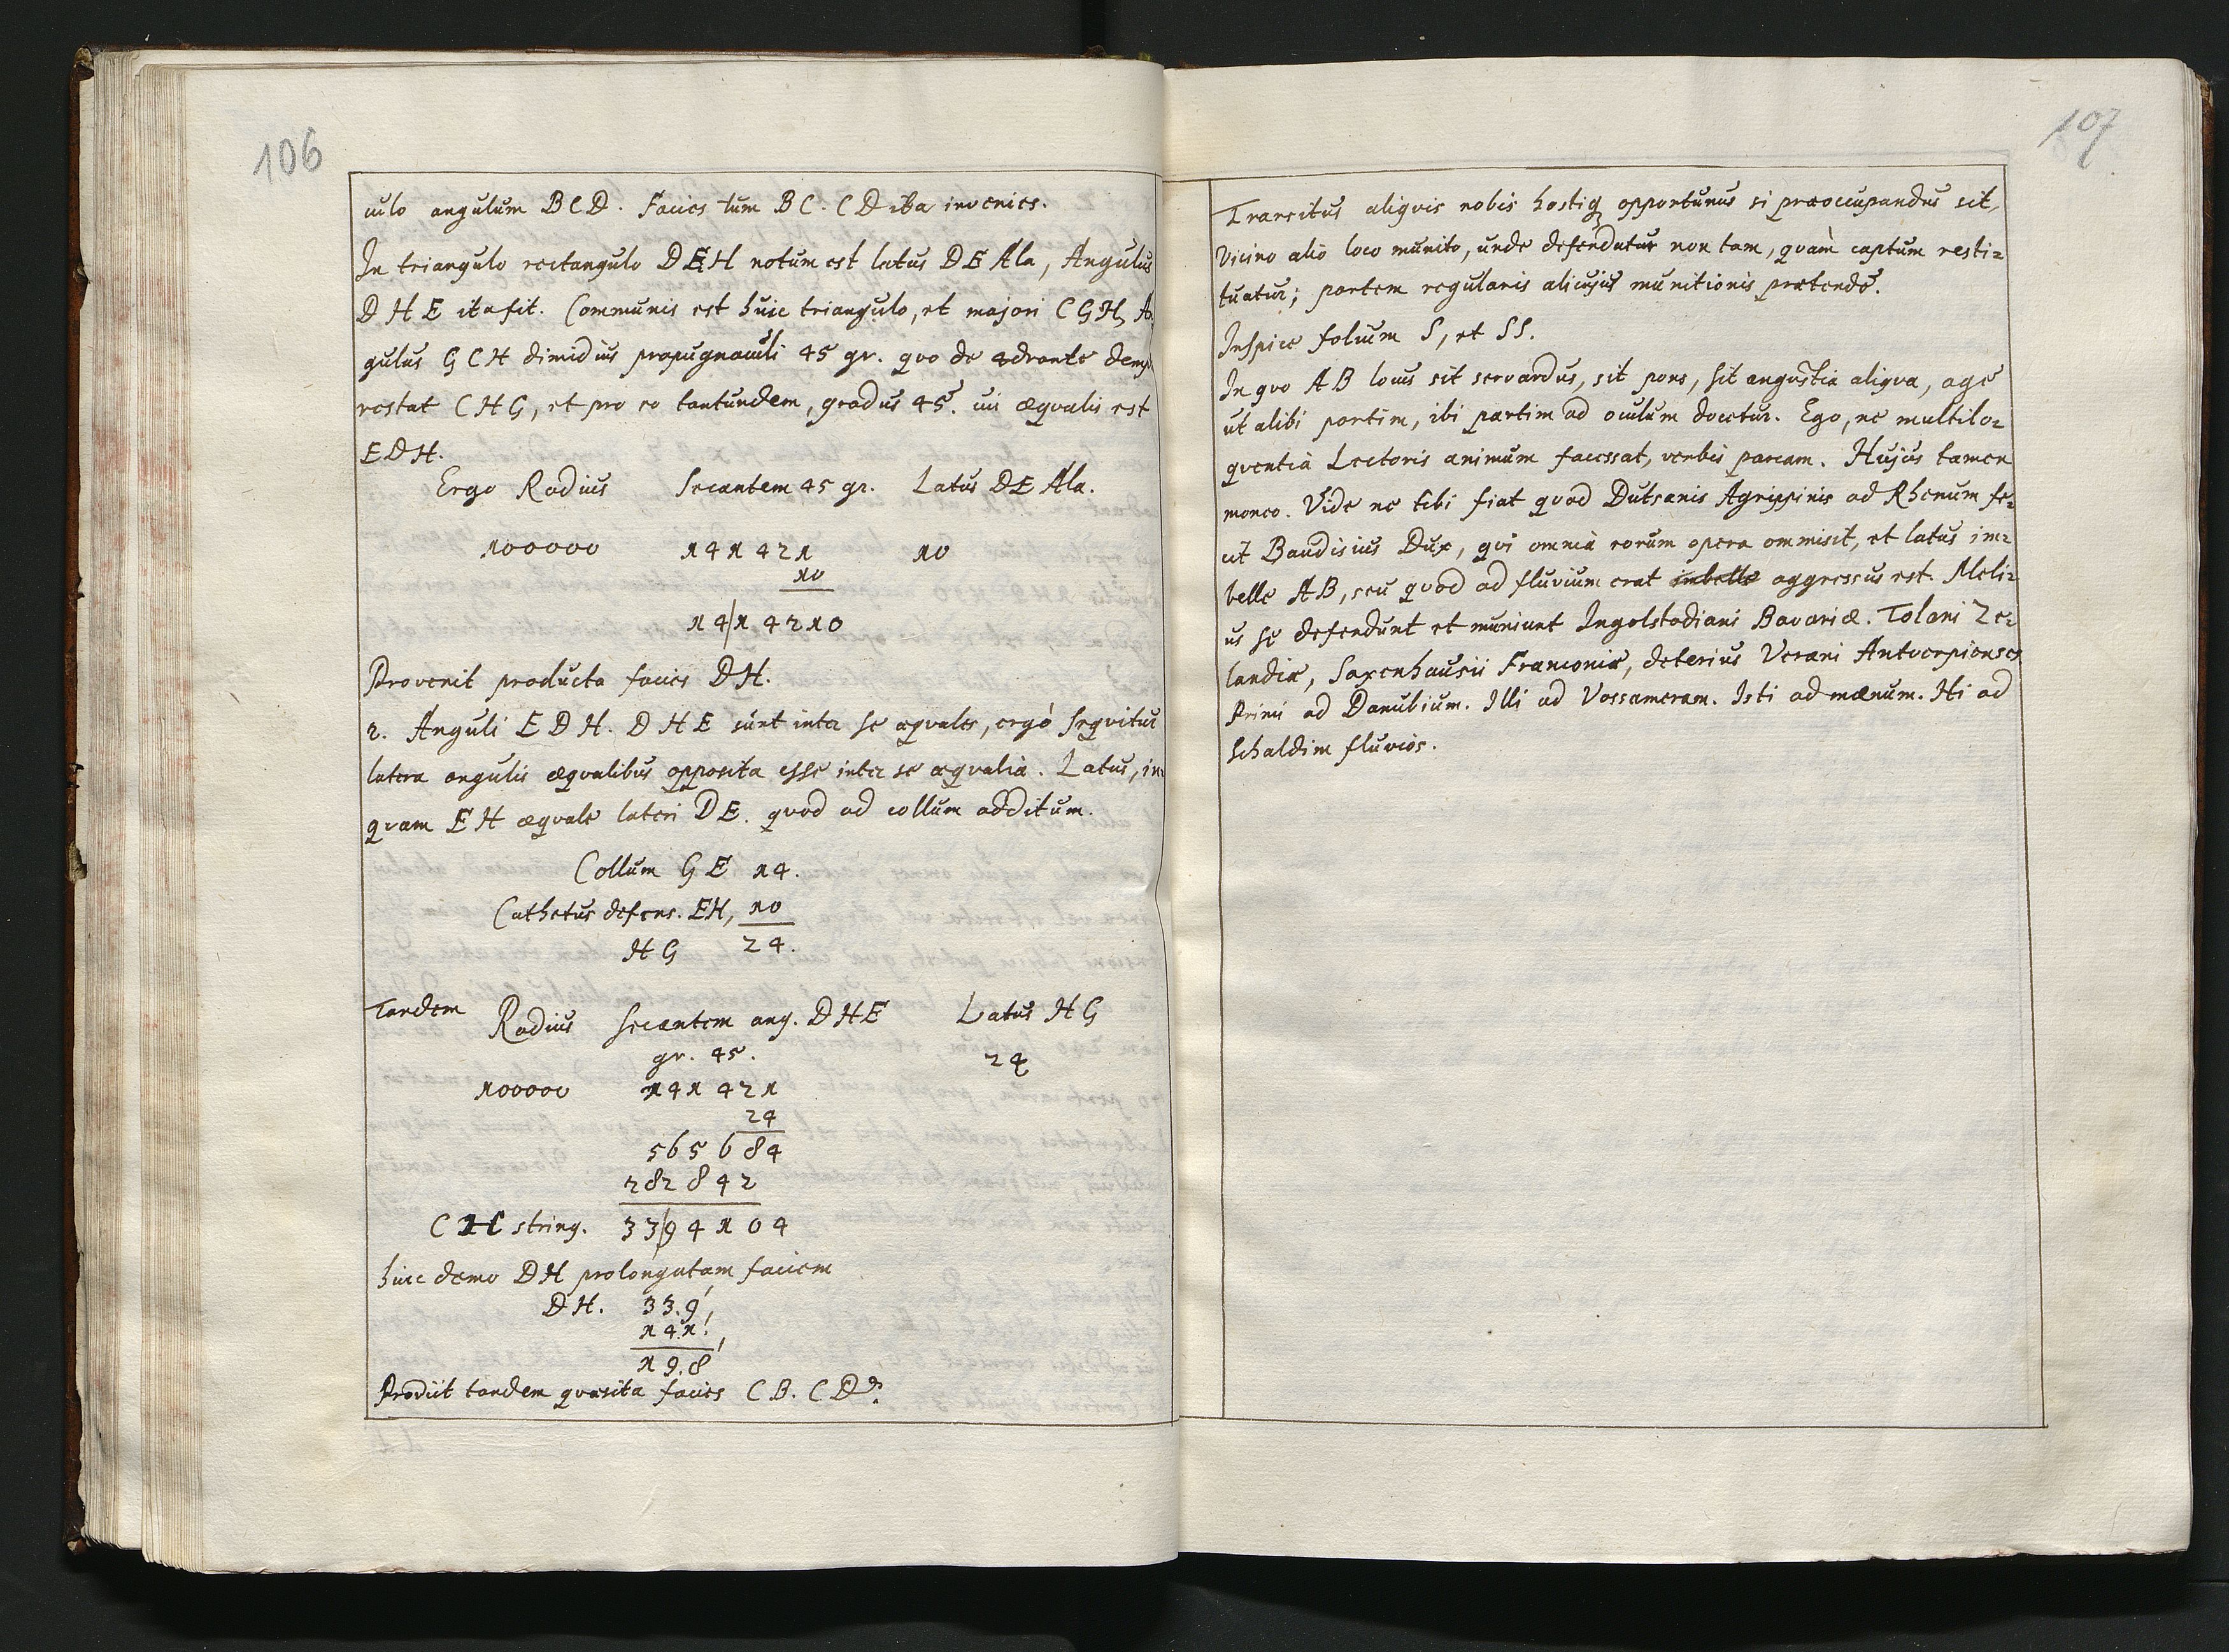 106
culo angulum BCD. Facies tum BC. CD ita invenies.
In triangulo rectangulo DEH notum est latus DE Ala, Angulus
DHE ita fit. Communis est huic triangulo, et majori CGH, A
gulus GCH dimidius propugnaculi 45 gr. quo de 4drante demp
restat CHG, et pro eo tantundem, gradus 45. cui æqvalis est
EDH.
Ergo Radius Secantem 45 gr. Latus DE Ala.
100000 141421 10
10
14|14210
Provenit producta facies DH.
2. Anguli EDH. DHE sunt inter se æqvales, ergò seqvitur
latera angulis æqvalibus opposita esse inter se æqvalia. Latus, in=
qvam EH æqvale lateri DE. qvod ad collum additum.
Collum GE 14.
Cathetus defens. EH, 10
HG 24.
Tandem Radius Secantem ang. DHE Latus HG
gr. 45. 24
100000 141421
24
565684
282842
CH string. 33|94104
huic demo DH prolongatam faciem
DH. 33.9'
14.1'
19.8'
Prodiit tandem qvæsita facies CB. CD.
107
Transitus aliqvis nobis hostiq opportunus si præoccupandus sit,
vicino aliò loco munito, unde defendatur non tam, qvam captum resti=
tuatur; partem regularis alicujus munitionis prætendo.
Inspice folium S, et SS.
In qvo AB locus sit servandus, sit pons, sit angustia aliqva, age
ut alibi partim, ibi partim ad oculum docetur. Ego, ne multilo=
qventia Lectoris animum facessat, verbis parcam. Hujus tamen
moneo. Vide ne tibi fiat qvod Dutsanis Agrippinis ad Rhenum fe=
cit Baudisius Dux, qvi omnia eorum opera ommisit, et latus im=
belle AB, seu qvod ad fluvium erat imbelle aggressus est. Meli=
us se defendunt et muniunt Ingolstadiani Bavariæ. Tolani Ze=
landiæ, Saxenhausii Franconiæ, deterius Verani Antverpienses
Primi ad Danubium. Illi ad Vossameram. Isti ad mænum. Hi ad
Schaldim fluvios.